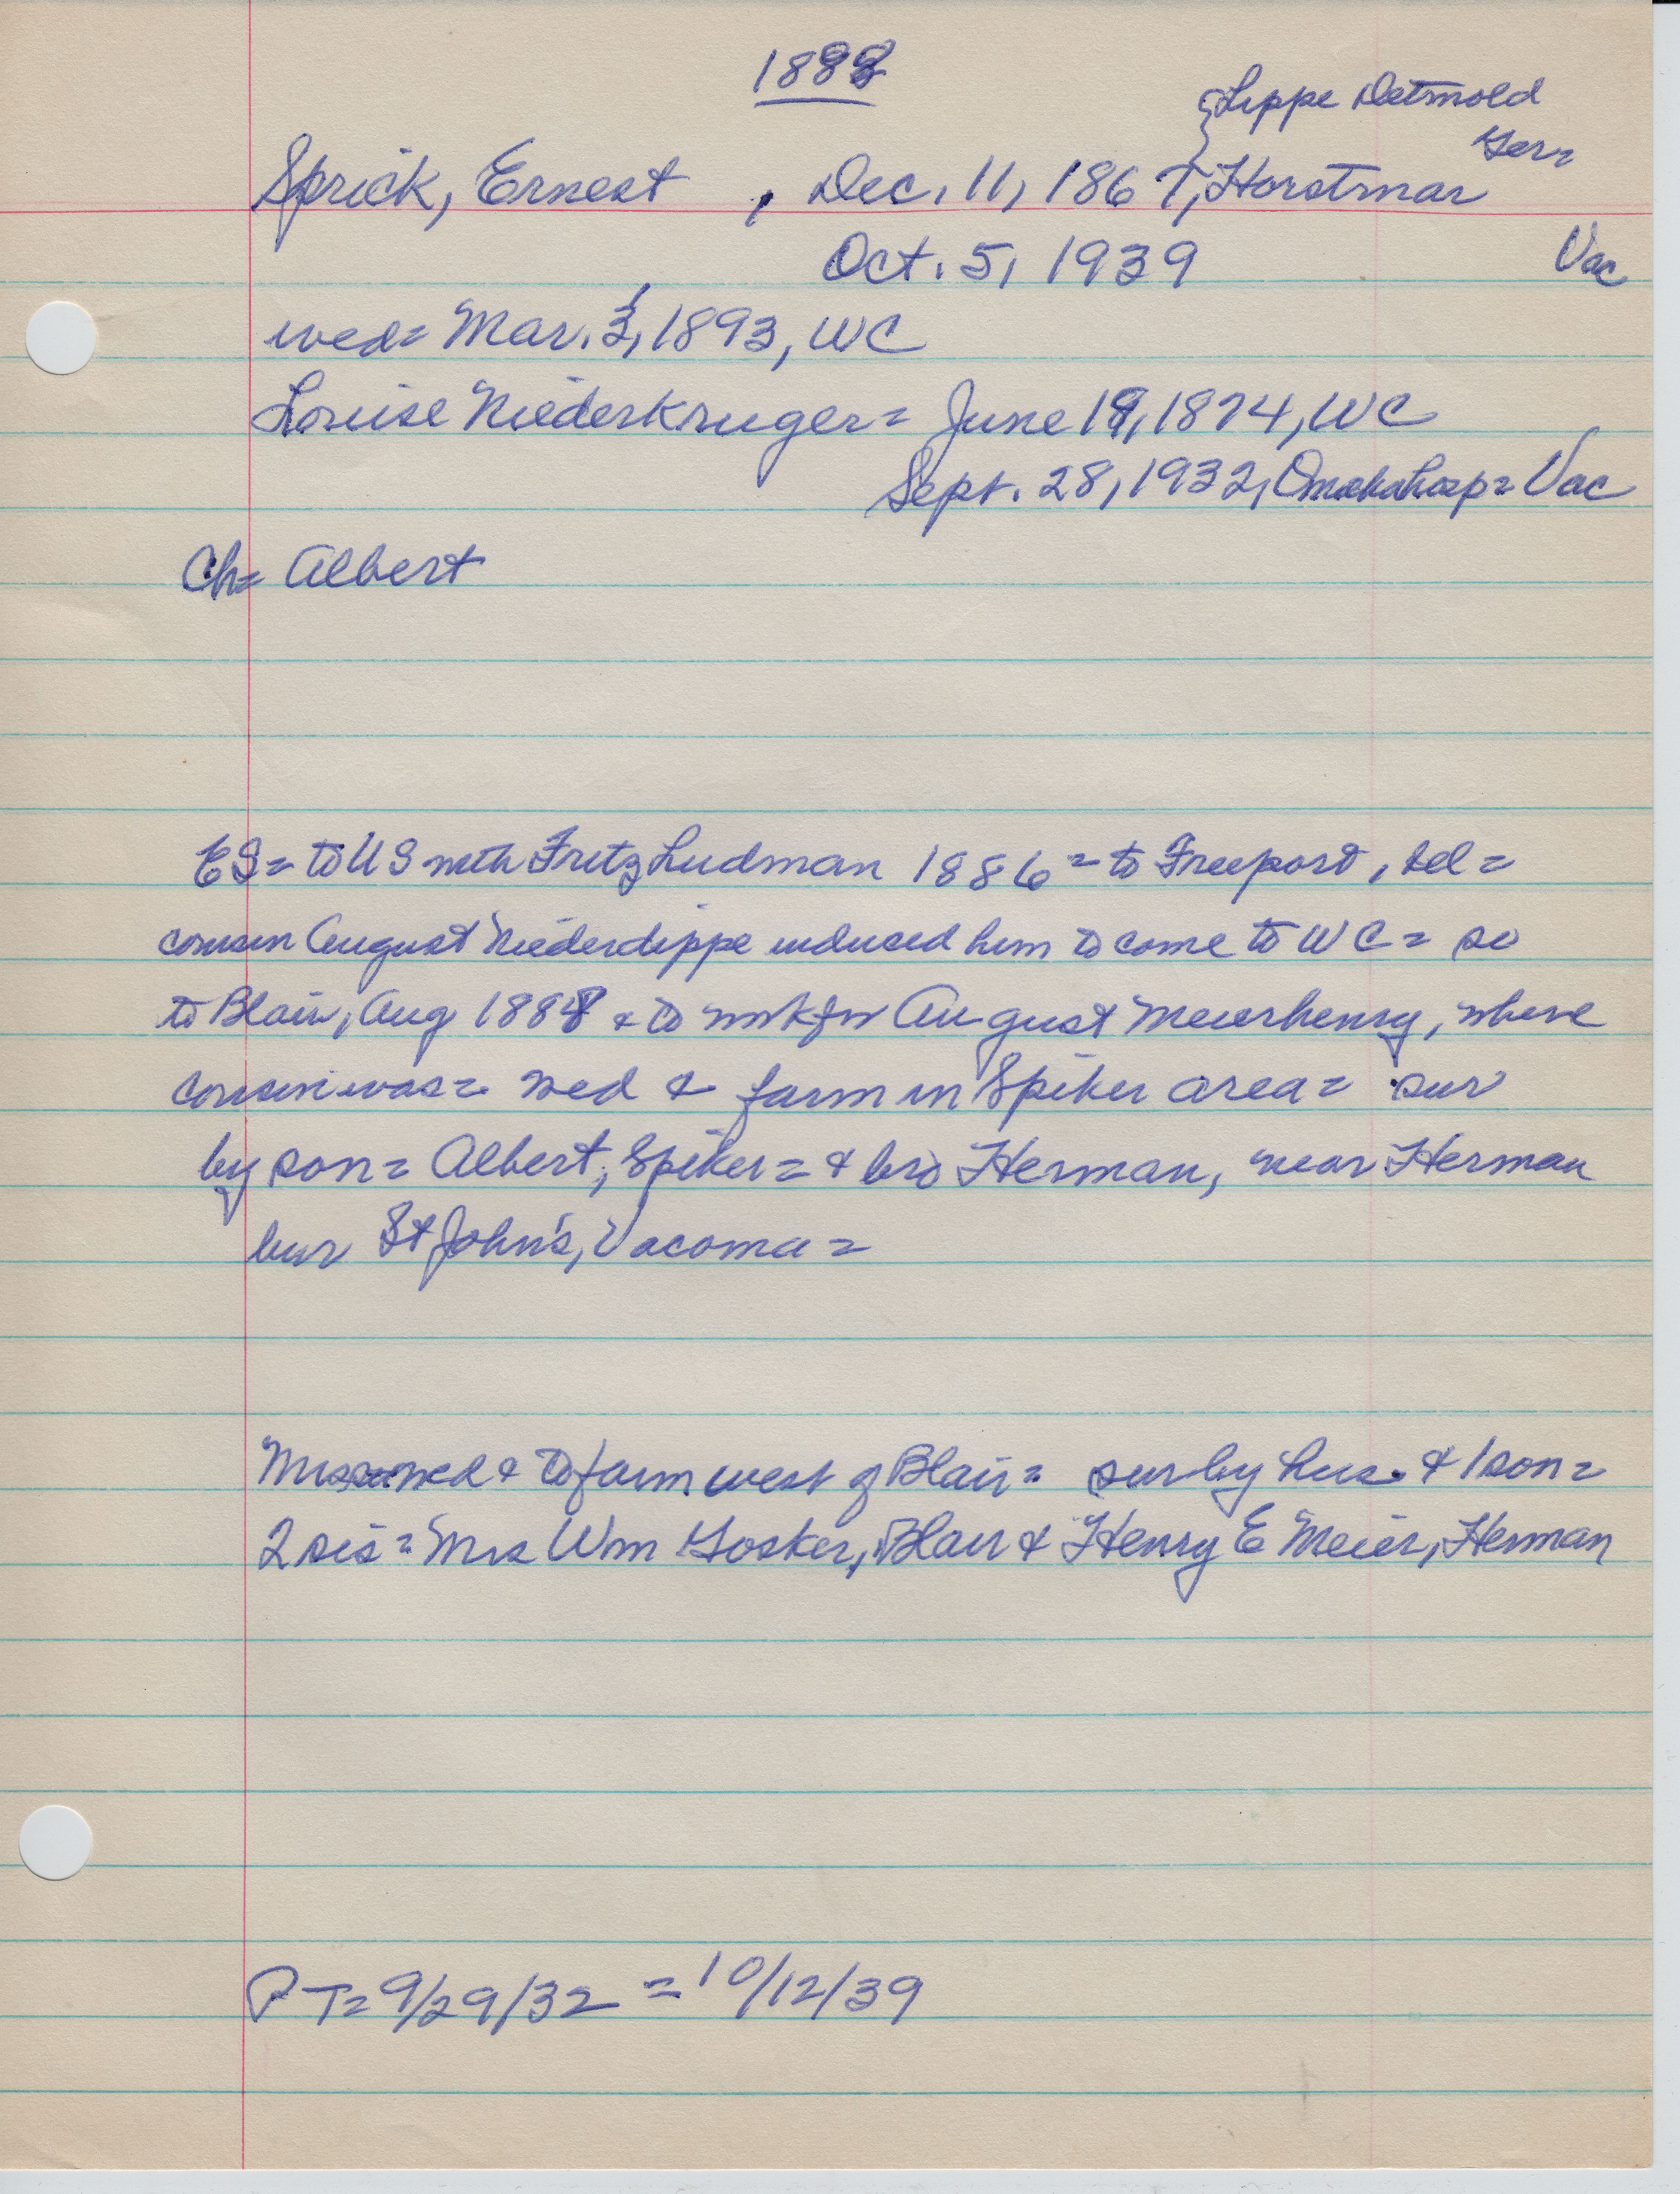 1888
{Lippe Detmold
Ger=
Sprick, Ernest , Dec. 11, 1867, Horstmar
Oct. 5, 1939 Vac
wed= Mar. 3, 1893, WC
Louise Niederkruger= June 19, 1874, WC
Sept. 28, 1932, Omaha hosp= Vac
Ch= Albert
ES= to US with Fritz Ludman 1886= to Freeport, Ill=
cousin August Niederdeppe induced him to come to WC= so
to Blair, Aug 1888 & to work for August Meierhenry, where
cousin was= wed & farm in Spiker area= sur
by son= Albert, Spiker= & bro Herman, near Herman
bur St John's, Vacoma=
Mrs wed & to farm west of Blair= sur by hus. & 1 son=
2 sis= Mrs Wm Gosker, Blair & Henry E Meier, Herman
PT= 9/29/32 = 10/12/39